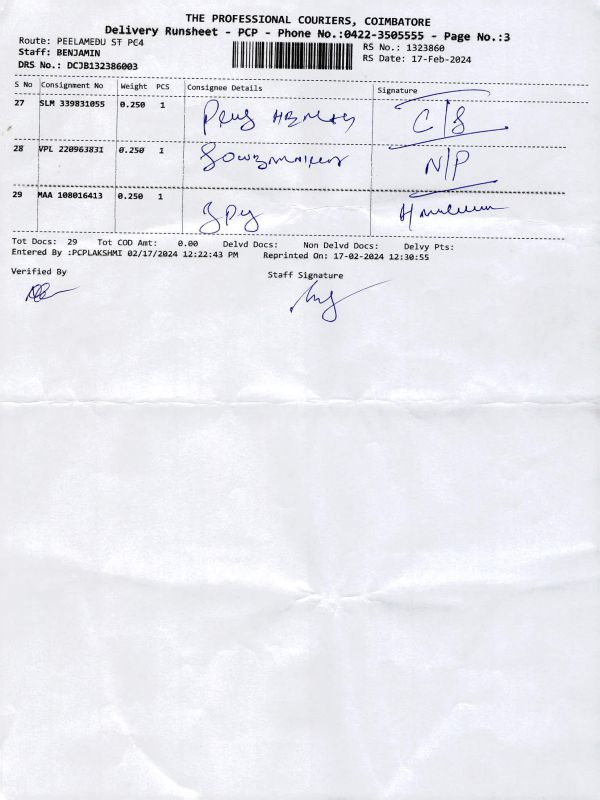 THE PROFESSIONAL COURIERS, COIMBATORE
Delivery Runsheet - PCP - Phone No.:0422-3505555 - Page No.:3
Route: PEELAMEDU ST PC4
RS No.: 1323860
Staff: BENJAMIN
RS Date: 17-Feb-2024
DRS No.: DCJB132386003
S No Consignment No Weight PCS Consignee Details Signature
27 SLM 339831055 0.250 1 C/S
28 VPL 220963831 0.250 1 N/P
29 MAA 108016413 0.250 1
Tot Docs: 29 Tot COD Amt: 0.00 Delvd Docs: Non Delvd Docs: Delvy Pts:
Entered By :PCPLAKSHMI 02/17/2024 12:22:43 PM Reprinted On: 17-02-2024 12:30:55
Verified By Staff Signature